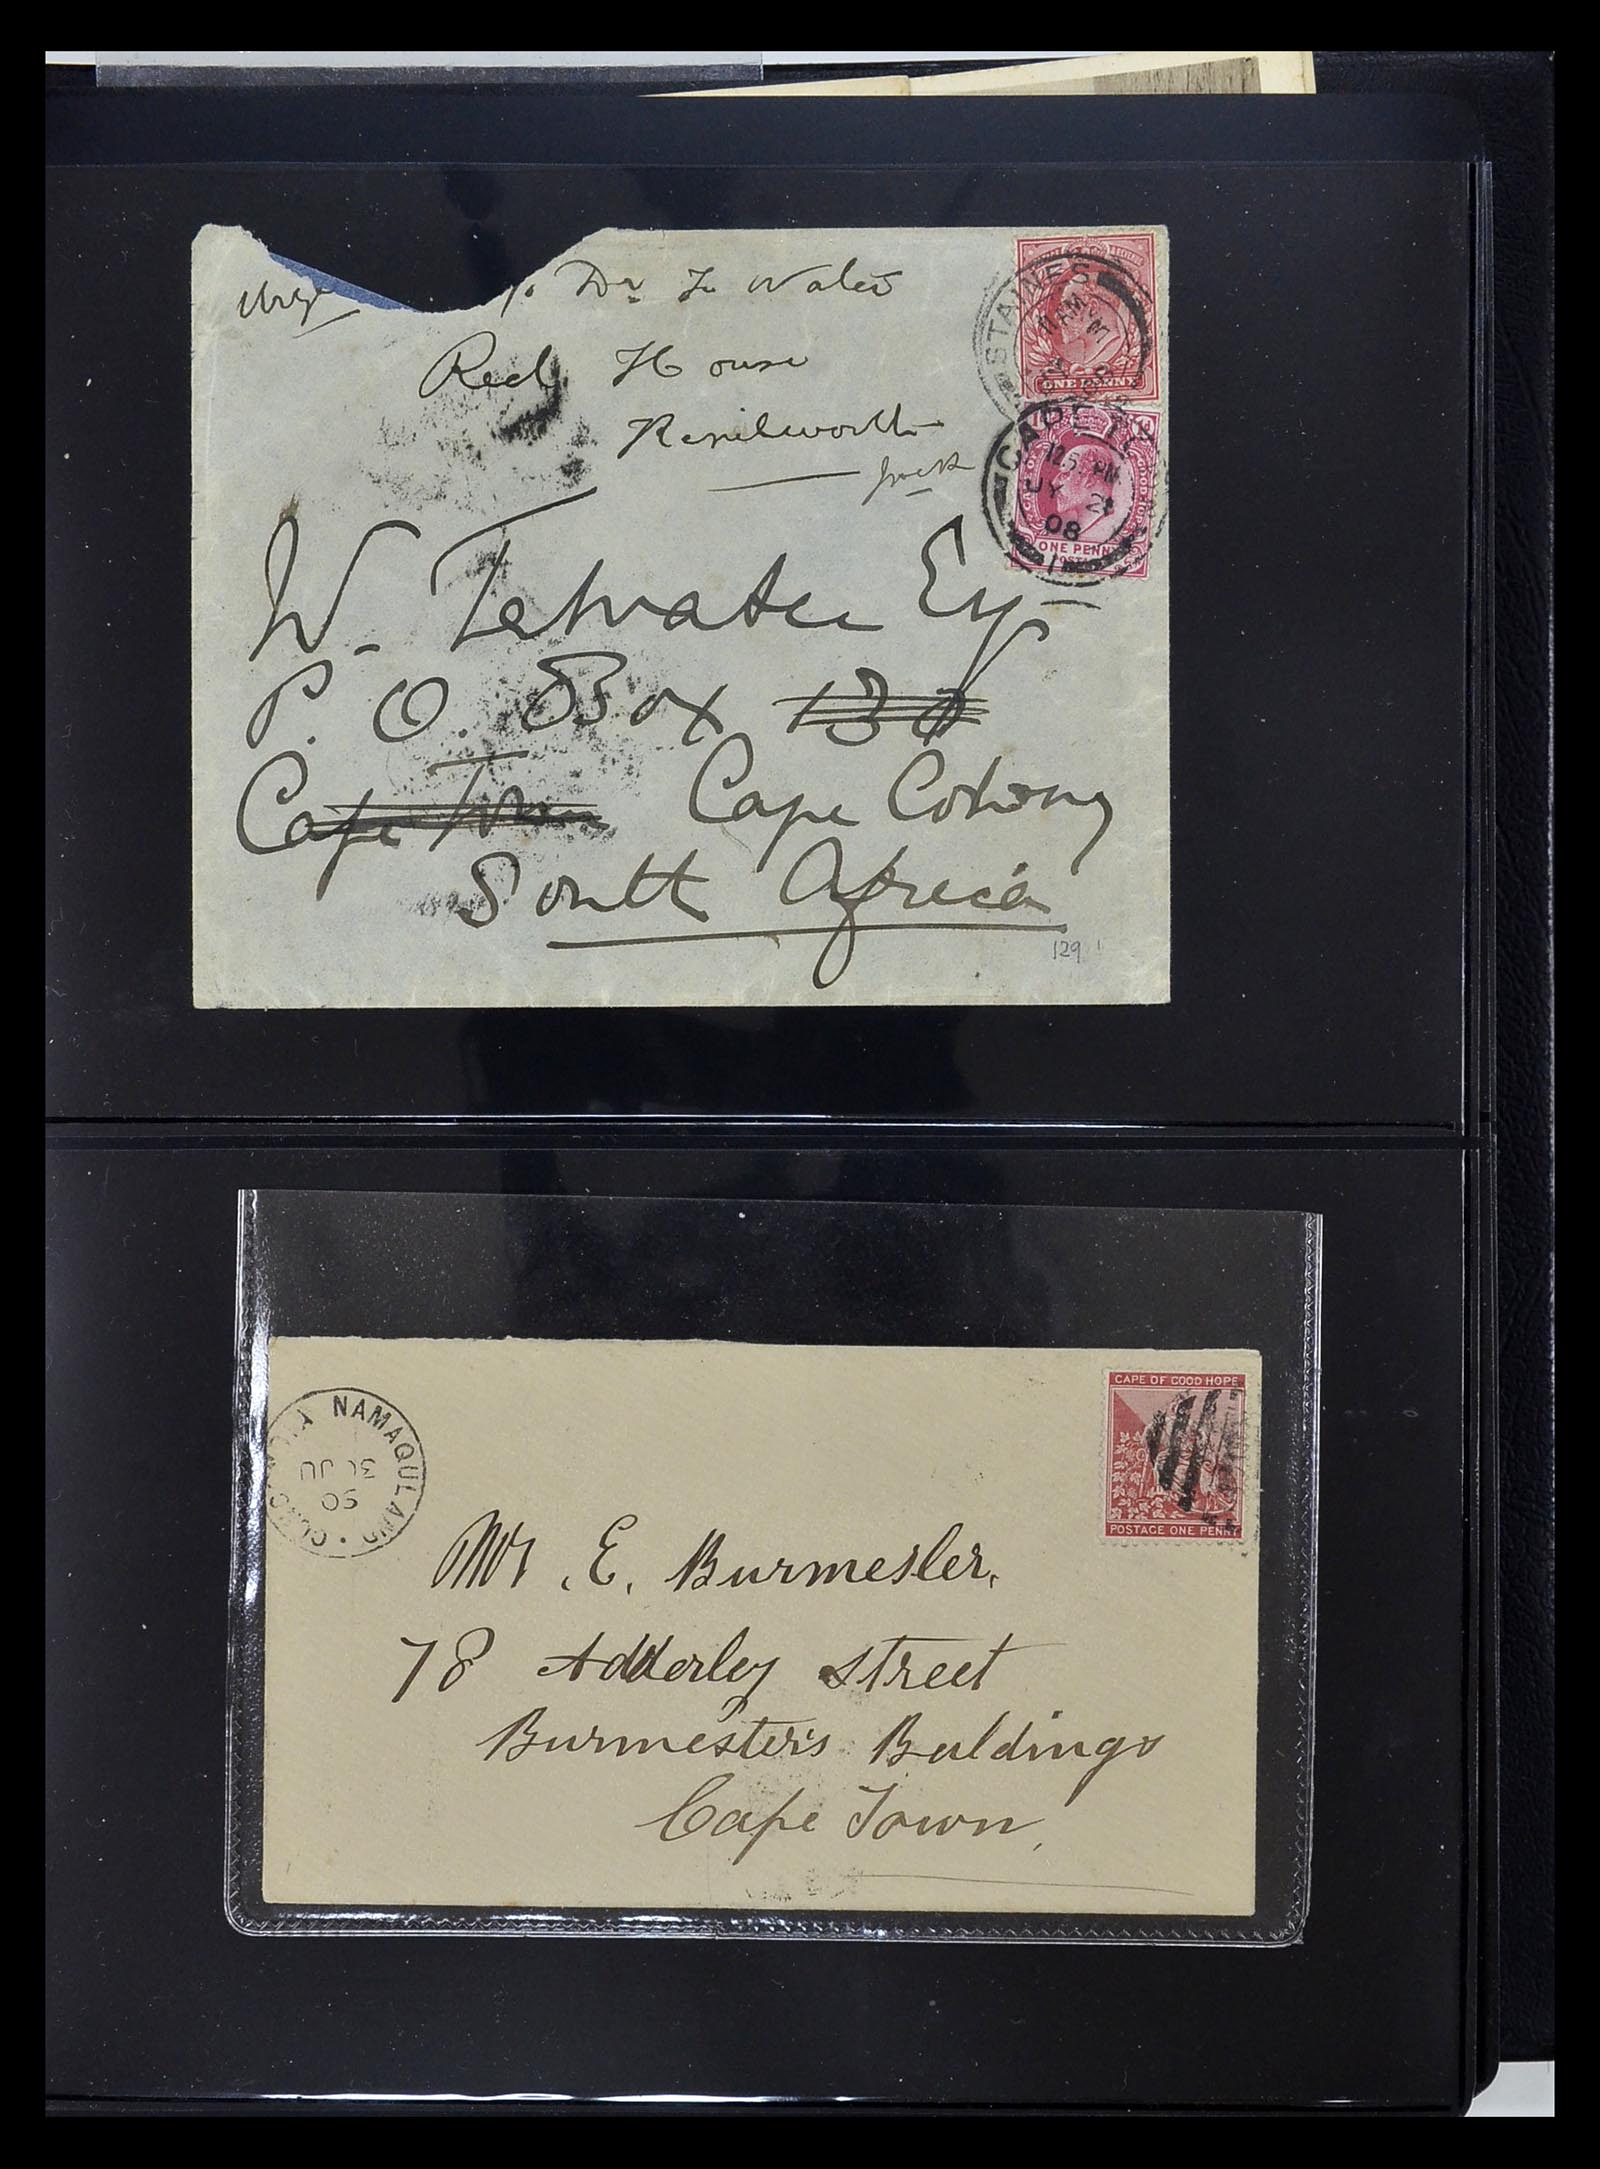 Urge
Dr
Red House
Kenilworth
STAINES
11 AM
ONE PENNY
CAPE
12.5 PM
JY 21
08
1
ONE PENNY
W. Tetwater Esq
P. O. Box 
Cape Town Cape Colony
South Africa
129
NAMAQUALAND
30 JU
90
CAPE OF GOOD HOPE
POSTAGE ONE PENNY
Mr. E. Burmester.
78 Adderley Street
Burmester's Buldings
Cape Town,